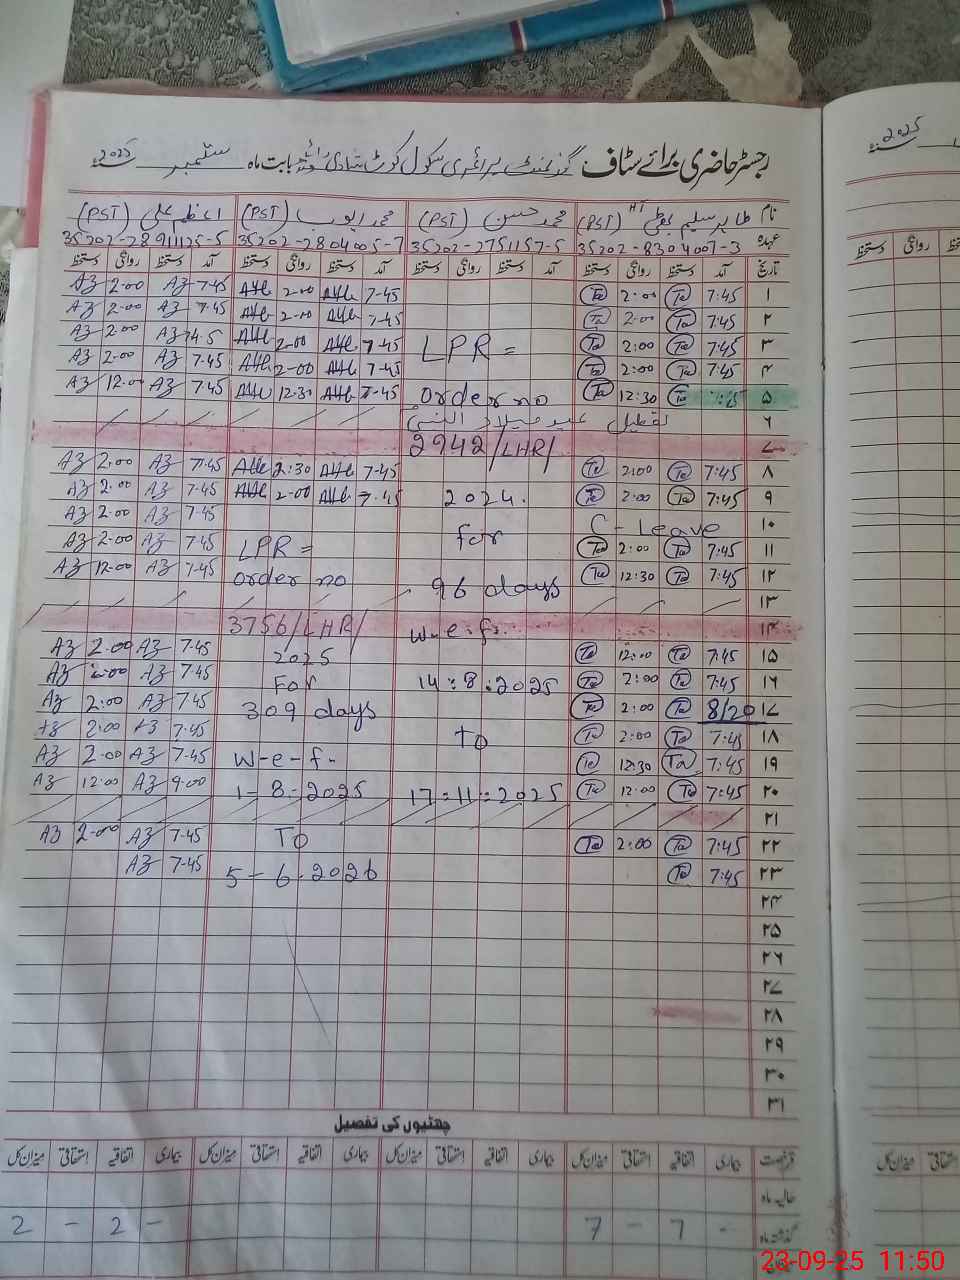 رجسٹر حاضری برائے سٹاف گورنمنٹ پرائمری سکول کوٹ بابت ماہ ستمبر 2025
نام طاہر سلیم بھٹی HT (PST) محمد حسن (PST) محمد ایوب (PST) اعظم علی (PST)
عہدہ 35202-8304007-3 35202-2751157-5 35202-2804005-7 35202-2891125-5
تاریخ آمد دستخط روانگی دستخط آمد دستخط روانگی دستخط آمد دستخط روانگی دستخط آمد دستخط روانگی دستخط
۱ 7:45 Ta 2:00 Ta 7-45 2-00 7-45 Az 2.00 Az
۲ 7:45 Ta 2:00 Ta 7-45 2-00 7-45 Az 2.00 Az
۳ 7:45 Ta 2:00 Ta LPR = 7-45 2-00 Az 2.00 Az
۴ 7:45 Ta 2:00 Ta 7-45 2-00 7.45 Az 2.00 Az
۵ Ta 12:30 Ta order no 7-45 12-30 7.45 Az 12.00 Az
۶ تعطیل عید میلاد النبی
۷ 2942/LHR/
۸ 7:45 Ta 2:00 Ta 7-45 2:30 7.45 Az 2.00 Az
۹ 7:45 Ta 2:00 Ta 2024. 7.45 2-00 7.45 Az 2.00 Az
۱۰ C-Leave for 7-45 Az 2.00 Az
۱۱ 7:45 Ta 2:00 Ta LPR = 7.45 Az 2.00 Az
۱۲ 7:45 Ta 12:30 Ta 96 days order no 7.45 Az 12.00 Az
۱۳
۱۴ w-e-f. 3756/LHR/
۱۵ 7:45 Ta 12:00 Ta 2025 7.45 Az 2.00 Az
۱۶ 7:45 Ta 2:00 Ta 14:8:2025 For 7.45 Az 2.00 Az
۱۷ 8/20 Ta 2:00 Ta 309 days 7.45 Az 2:00 Az
۱۸ 7:45 Ta 2:00 Ta to 7.45 Az 2:00 Az
۱۹ 7:45 Ta 12:30 Ta w-e-f- 7.45 Az 2.00 Az
۲۰ 7:45 Ta 12:00 Ta 17:11:2025 1-8-2025 9.00 Az 12:00 Az
۲۱
۲۲ 7:45 Ta 2:00 Ta To 7.45 Az 2.00 Az
۲۳ 7:45 Ta 5-6.2026 7.45 Az
۲۴
۲۵
۲۶
۲۷
۲۸
۲۹
۳۰
۳۱
چھٹیوں کی تفصیل
قسم رخصت بیماری اتفاقیہ استحقاقی میزان کل بیماری اتفاقیہ استحقاقی میزان کل بیماری اتفاقیہ استحقاقی میزان کل بیماری اتفاقیہ استحقاقی میزان کل
حالیہ ماہ
گذشتہ ماہ - 7 - 7 - 2 - 2
23-09-25 11:50